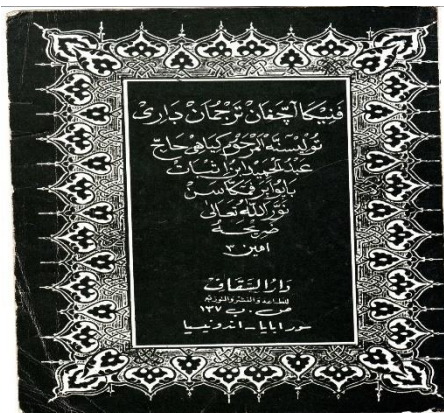 فنيكا اچفان ترجمان داري
توليسنڤ المرحوم كياهي حاج
عبد الحميد ابن اثبات
بايوابر فمكاسن
نور الله تعالى
ضريحه
امين ٣
دار السقاف
للطباعة والنشر والتوزيع
ص . ب ١٣٧
سورابايا - اندونيسيا